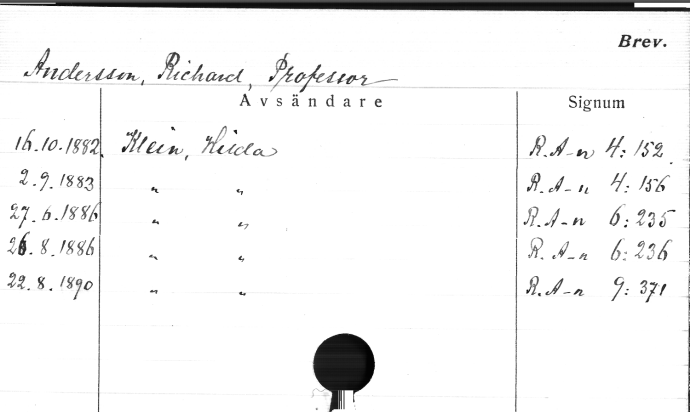 Brev.
Andersson, Richard, Professor
Avsändare Signum
16.10.1882. Klein, Hilda R. A-n 4: 152.
2.9.1883 " " R. A-n 4: 156
27.6.1886 " " R. A-n 6: 235
26.8.1886 " " R. A-n 6: 236
22.8.1890 " " R. A-n 9: 371